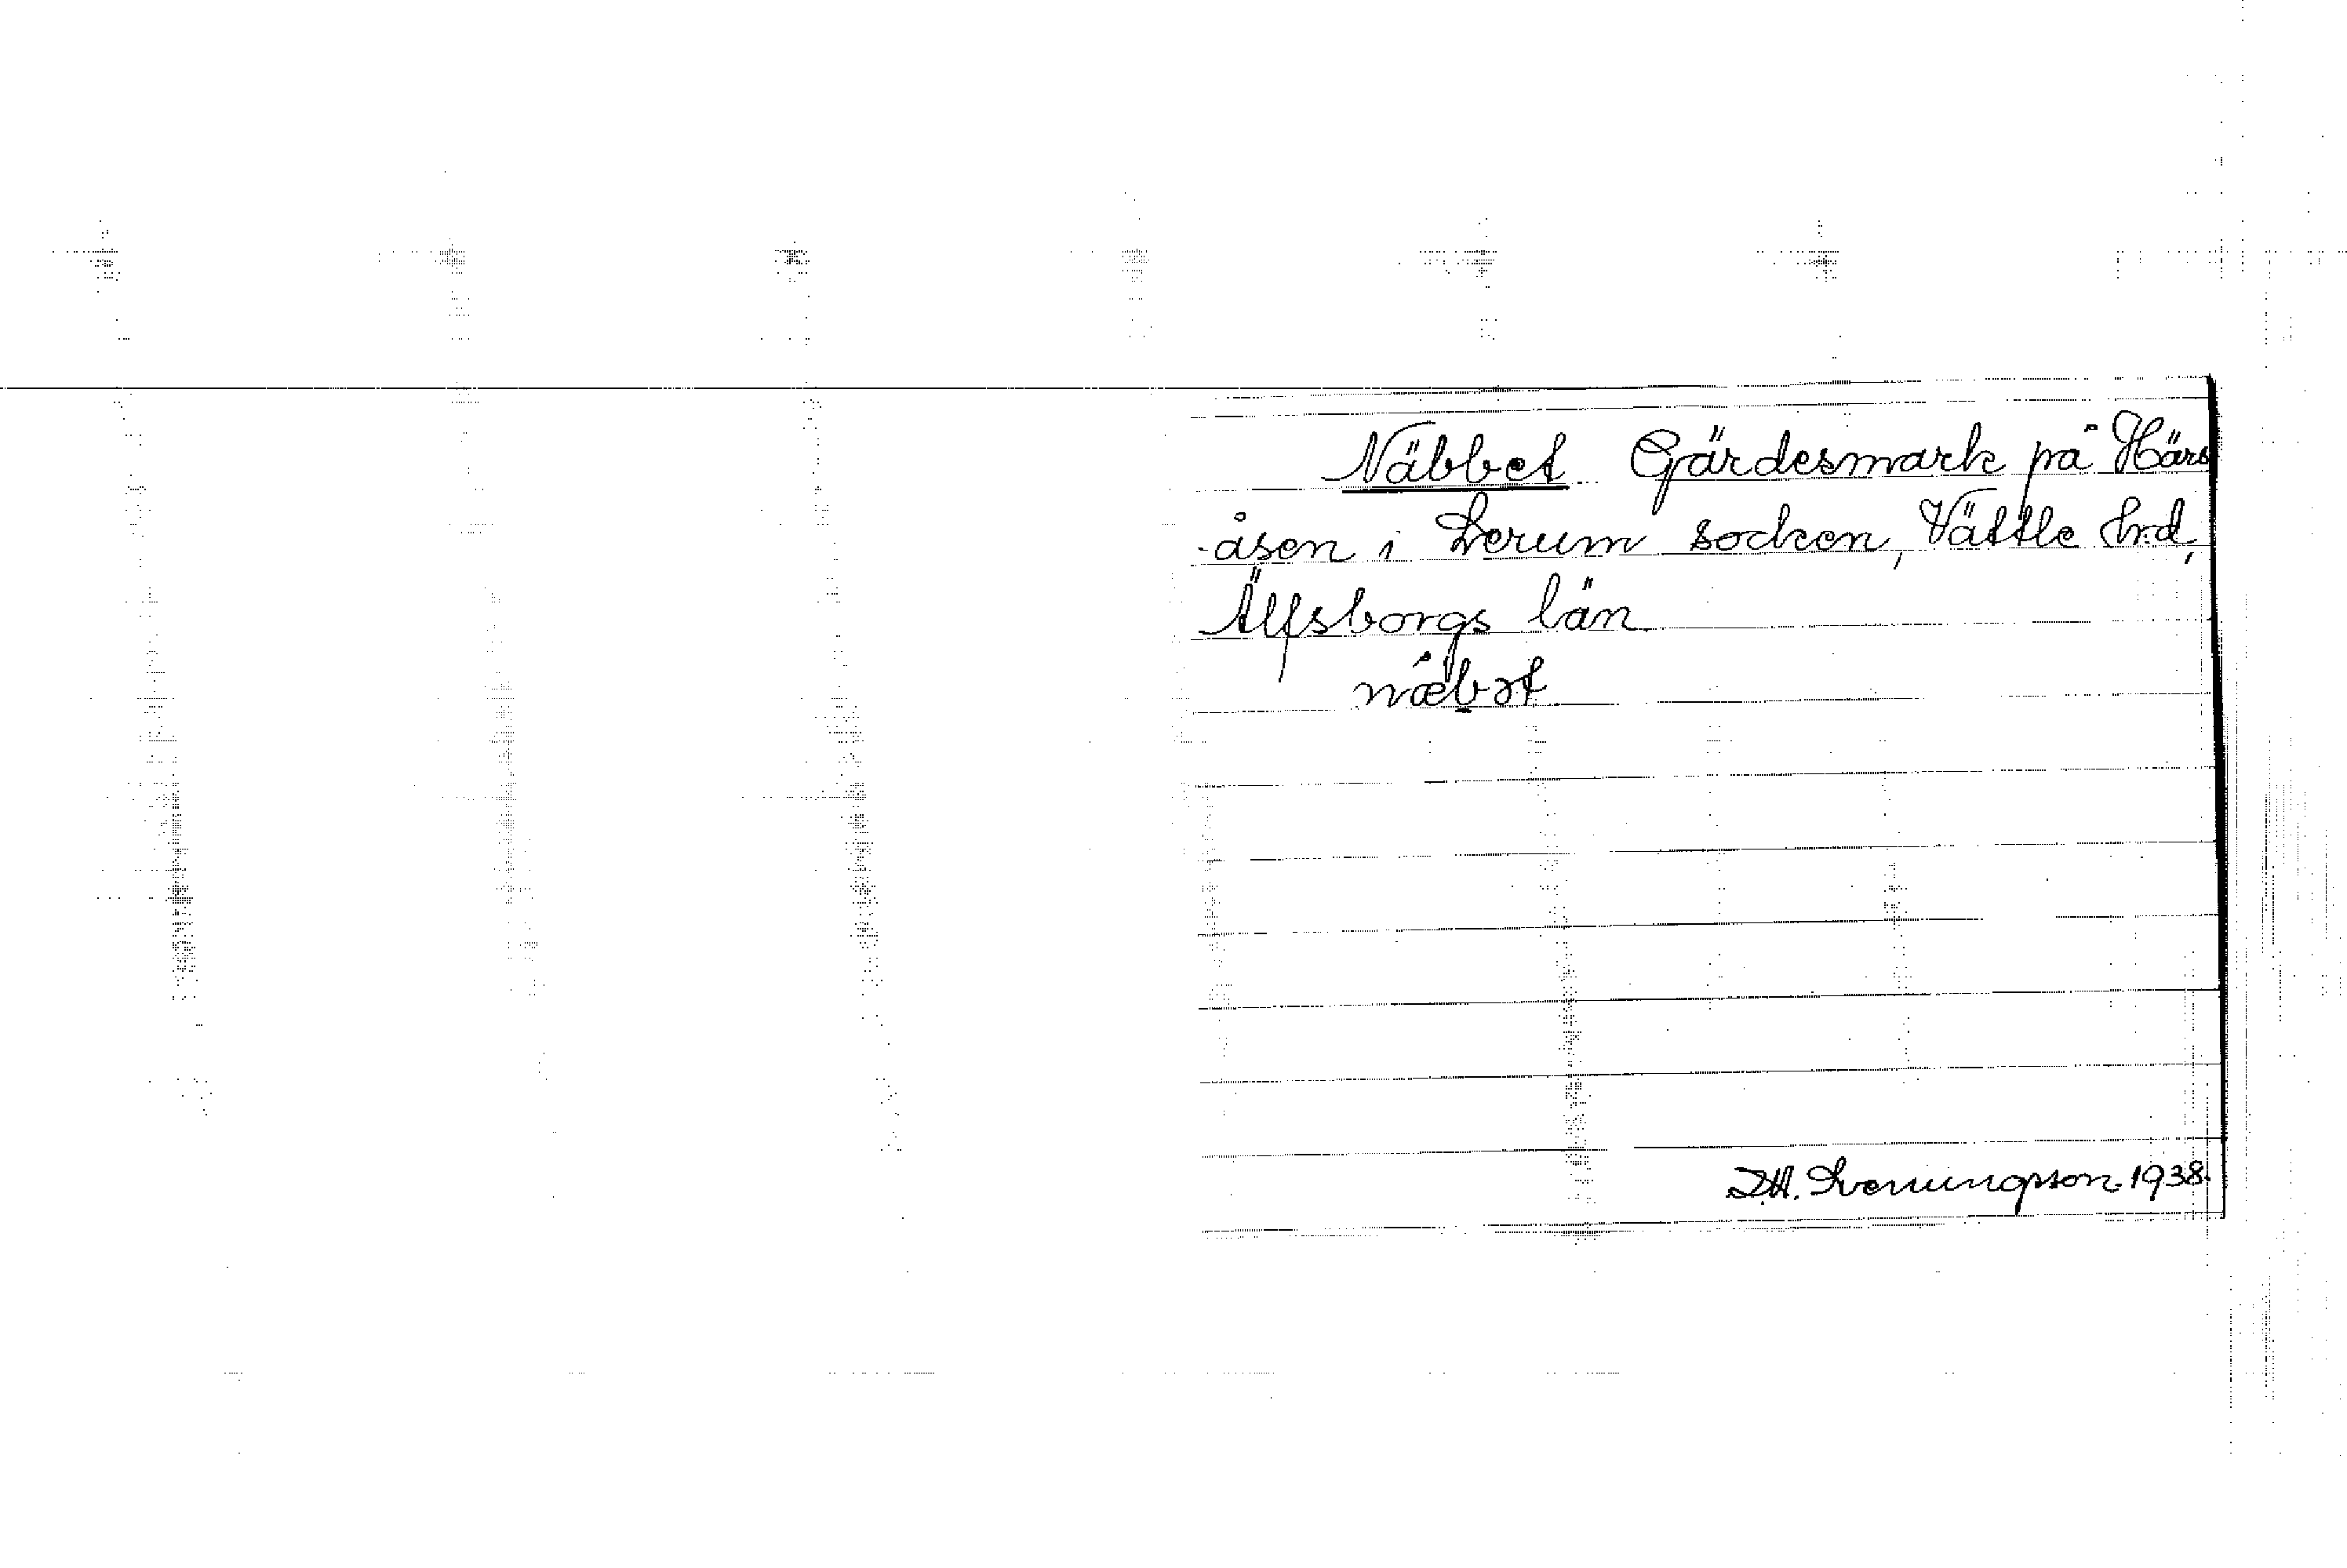 Näbbet Gärdesmark på Härs
-åsen i Lerum socken, Vättle hrd,
Älfsborgs län
næ̀bət
D.H. Svenungsson. 1938.